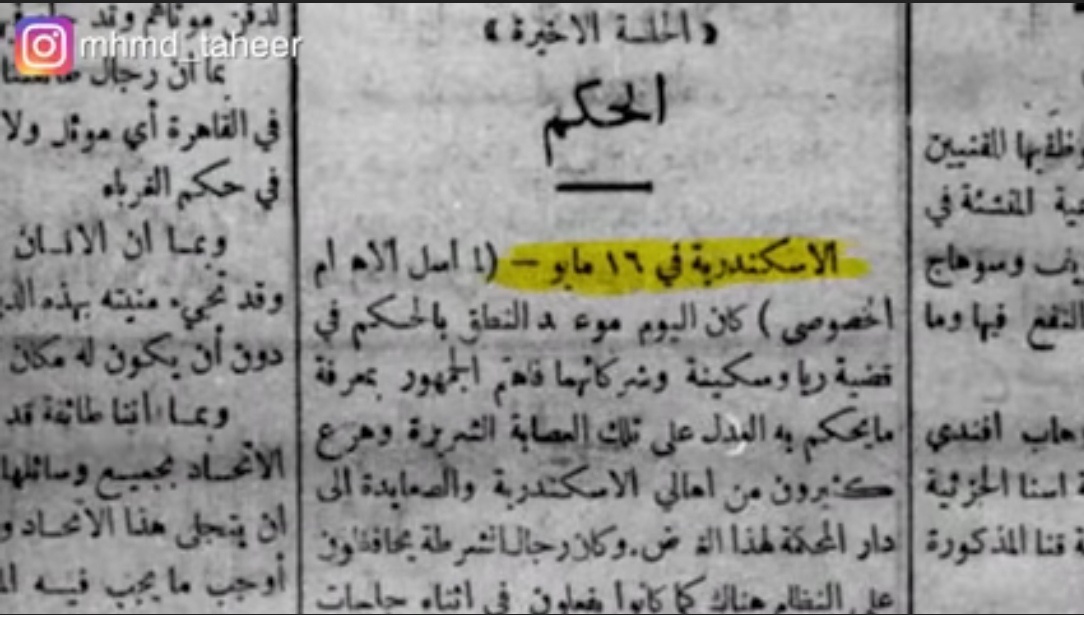 mhmd_taheer
« الجلسة الاخيرة »
الحكم
الاسكندرية في ١٦ مايو — (لمراسل الاهرام
الخصوصي) كان اليوم موعد النطق بالحكم في
قضية ريا وسكينة وشركائهما فاهتم الجمهور بمعرفة
مايحكم به العدل على تلك العصابة الشريرة وهرع
كثيرون من اهالي الاسكندرية والصعايدة الى
دار المحكمة لهذا الغرض. وكان رجال الشرطة يحافظون
على النظام هناك كما كانوا يفعلون في اثناء جلسات
وظفيها المقنيين
المفتشة في
وسوهاج
النفع فيها وما
افندي
اسنا الجزئية
قنا المذكورة
لدفن موتاهم وقد
بما ان رجال
في القاهرة أي موئل ولا
في حكم الغرباء
وبما ان الانسان
وقد تجيء منيته بهذه
دون أن يكون له مكان
وبما أننا طائفة قد
الاتحاد بجميع وسائلها
ان يتجلى هذا الاتحاد و
أوجب ما يجب فيه